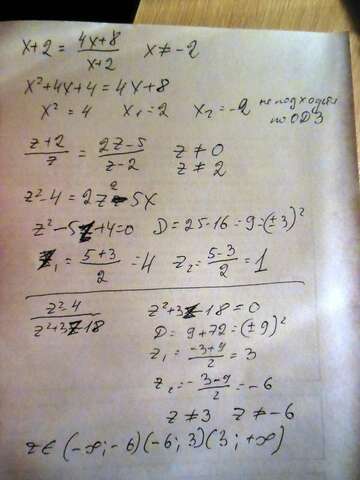 x+2 = (4x+8)/(x+2) x ≠ -2
x²+4x+4 = 4x+8
x² = 4 x₁ = 2 x₂ = -2 не подходит по ОДЗ
(z+2)/z = (2z-5)/(z-2) z ≠ 0 z ≠ 2
z²-4 = 2z²-5x
z²-5z+4=0 D = 25-16 = 9 = (±3)²
z₁ = (5+3)/2 = 4 z₂ = (5-3)/2 = 1
(z²-4)/(z²+3z-18) z²+3z-18 = 0
D = 9+72 = (±9)²
z₁ = (-3+9)/2 = 3
z₂ = (-3-9)/2 = -6
z ≠ 3 z ≠ -6
z ∈ (-∞; -6)(-6; 3)(3; +∞)